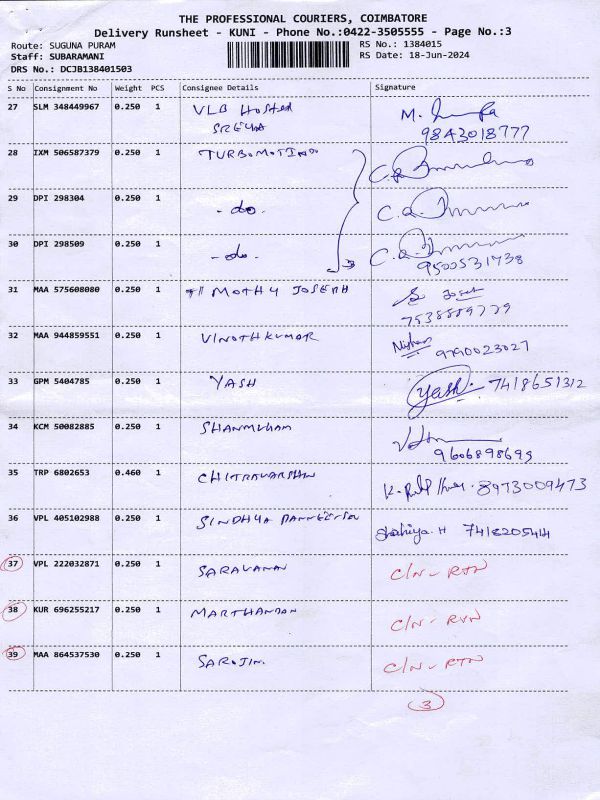 THE PROFESSIONAL COURIERS, COIMBATORE
Delivery Runsheet - KUNI - Phone No.:0422-3505555 - Page No.:3
Route: SUGUNA PURAM
RS No.: 1384015
Staff: SUBARAMANI
RS Date: 18-Jun-2024
DRS No.: DCJB138401503
S No Consignment No Weight PCS Consignee Details Signature
27 SLM 348449967 0.250 1 VLB Hosted M.
SREYHA 9843018777
28 IXM 506587379 0.250 1 TURBOMOTINDO
29 DPI 298304 0.250 1 - do -
30 DPI 298509 0.250 1 - do - 3
9500531738
31 MAA 575608080 0.250 1 MOTHY JOSEPH
32 MAA 944859551 0.250 1 VINOTHKUMAR
9790023027
33 GPM 5404785 0.250 1 YASH Yash. 7418651312
34 KCM 50082885 0.250 1 SHANMUHAM
9606898699
35 TRP 6802653 0.460 1 K. 8973009473
36 VPL 405102988 0.250 1 SINDHYA
37 VPL 222032871 0.250 1 SARAVANAN C/N - RTN
38 KUR 696255217 0.250 1 MARTHANDAN C/N - RTN
39 MAA 864537530 0.250 1 SAROJIN. C/N - RTN
3